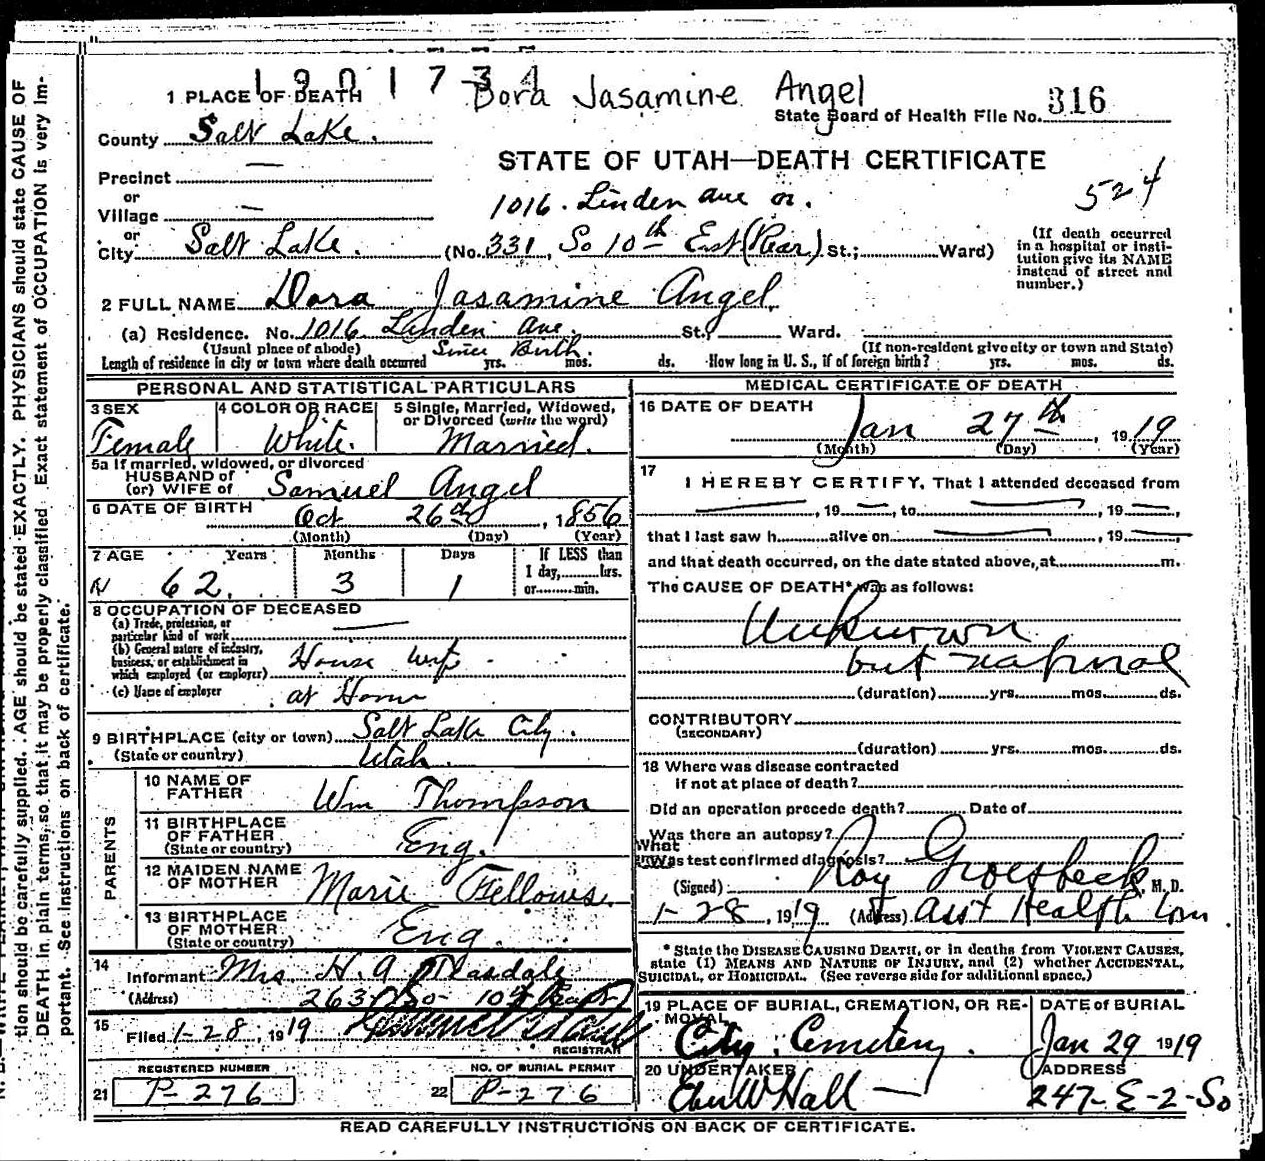 1901734
Dora Jasamine Angel
1 PLACE OF DEATH
State Board of Health File No. 316
County Salt Lake.
STATE OF UTAH—DEATH CERTIFICATE
Precinct —
524
or
Village —
1016. Linden Ave or.
or
City Salt Lake. (No. 331, So 10th East (Rear) St.; Ward)
(If death occurred in a hospital or institution give its NAME instead of street and number.)
2 FULL NAME Dora Jasamine Angel
(a) Residence. No. 1016 Linden Ave. St., Ward.
(Usual place of abode) (If non-resident give city or town and State)
Length of residence in city or town where death occurred Since Birth. yrs. mos. ds. How long in U. S., if of foreign birth? yrs. mos. ds.
PERSONAL AND STATISTICAL PARTICULARS
3 SEX Female
4 COLOR OR RACE White.
5 Single, Married, Widowed, or Divorced (write the word) Married.
5a If married, widowed, or divorced
HUSBAND of
(or) WIFE of Samuel Angel
6 DATE OF BIRTH Oct 26th, 1856
(Month) (Day) (Year)
7 AGE Years Months Days If LESS than
1 day, hrs.
or min.
62. 3 1
8 OCCUPATION OF DECEASED
(a) Trade, profession, or
particular kind of work —
(b) General nature of industry,
business, or establishment in
which employed (or employer) House Wife
(c) Name of employer at Home
9 BIRTHPLACE (city or town) Salt Lake City.
(State or country) Utah.
PARENTS
10 NAME OF FATHER Wm Thompson
11 BIRTHPLACE OF FATHER
(State or country) Eng.
12 MAIDEN NAME OF MOTHER Marie Fellows.
13 BIRTHPLACE OF MOTHER
(State or country) Eng.
14 Informant Mrs. H. A
(Address) 263 So 10th East
15 Filed 1-28, 1919
REGISTRAR
REGISTERED NUMBER
21 P-276
NO. OF BURIAL PERMIT
22 P-276
MEDICAL CERTIFICATE OF DEATH
16 DATE OF DEATH Jan 27th, 1919
(Month) (Day) (Year)
17 I HEREBY CERTIFY, That I attended deceased from
—, 19 —, to —, 19 —,
that I last saw h alive on —, 19 —
and that death occurred, on the date stated above, at m.
The CAUSE OF DEATH* was as follows:
Unknown
but natural
(duration) yrs. mos. ds.
CONTRIBUTORY
(SECONDARY)
(duration) yrs. mos. ds.
18 Where was disease contracted
if not at place of death?
Did an operation precede death? Date of
Was there an autopsy?
What
Was test confirmed diagnosis?
(Signed) Roy Groesbeck, M. D.
1-28, 1919 (Address) Asst Health Com
* State the DISEASE CAUSING DEATH, or in deaths from VIOLENT CAUSES,
state (1) MEANS AND NATURE OF INJURY, and (2) whether ACCIDENTAL,
SUICIDAL, or HOMICIDAL. (See reverse side for additional space.)
19 PLACE OF BURIAL, CREMATION, OR REMOVAL
City Cemetery.
DATE of BURIAL
Jan 29 1919
20 UNDERTAKER
Eber W Hall
ADDRESS
247-E-2-So
READ CAREFULLY INSTRUCTIONS ON BACK OF CERTIFICATE.
tion should be carefully supplied. AGE should be stated EXACTLY. PHYSICIANS should state CAUSE OF
DEATH in plain terms, so that it may be properly classified. Exact statement of OCCUPATION is very im-
portant. See instructions on back of certificate.